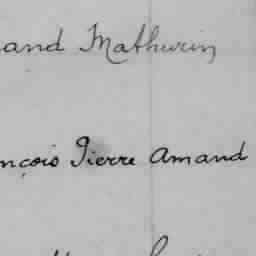 and Mathurin
nçois Pierre Amand